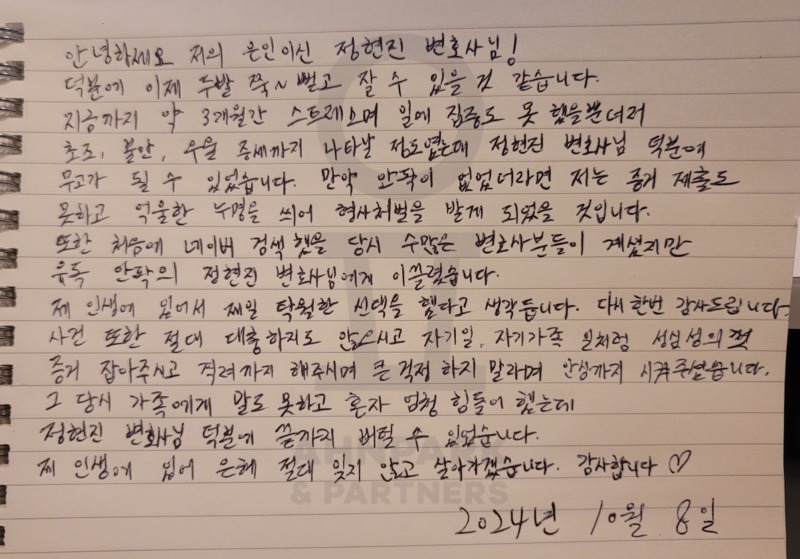 안녕하세요 저의 은인이신 정현진 변호사님!
덕분에 이제 두발 쭉~ 뻗고 잘 수 있을 것 같습니다.
지금까지 약 3개월간 스트레으며 일에 집중도 못 했을뿐더러
초조, 불안, 우울 증세까지 나타날 정도였는데 정현진 변호사님 덕분에
무고가 될 수 있었습니다. 만약 안팍이 없었더라면 저는 증거 제출도
못하고 억울한 누명을 씌어 형사처벌을 받게 되었을 것입니다.
또한 처음에 네이버 검색 했을 당시 수많은 변호사분들이 계셨지만
유독 안팍의 정현진 변호사님에게 이끌렸습니다.
제 인생에 있어서 제일 탁월한 선택을 했다고 생각듭니다. 다시 한번 감사드립니다.
사건 또한 절대 대충하지도 않으시고 자기일, 자기가족 일처럼 성심성의껏
증거 잡아주시고 격려까지 해주시며 큰 걱정 하지 말라며 안심까지 시켜주셨습니다.
그 당시 가족에게 말도 못하고 혼자 엄청 힘들어 했는데
정현진 변호사님 덕분에 끝까지 버틸 수 있었습니다.
제 인생에 있어 은혜 절대 잊지 않고 살아가겠습니다. 감사합니다 ♡
AHNPARK
& PARTNERS
2024년 10월 8일